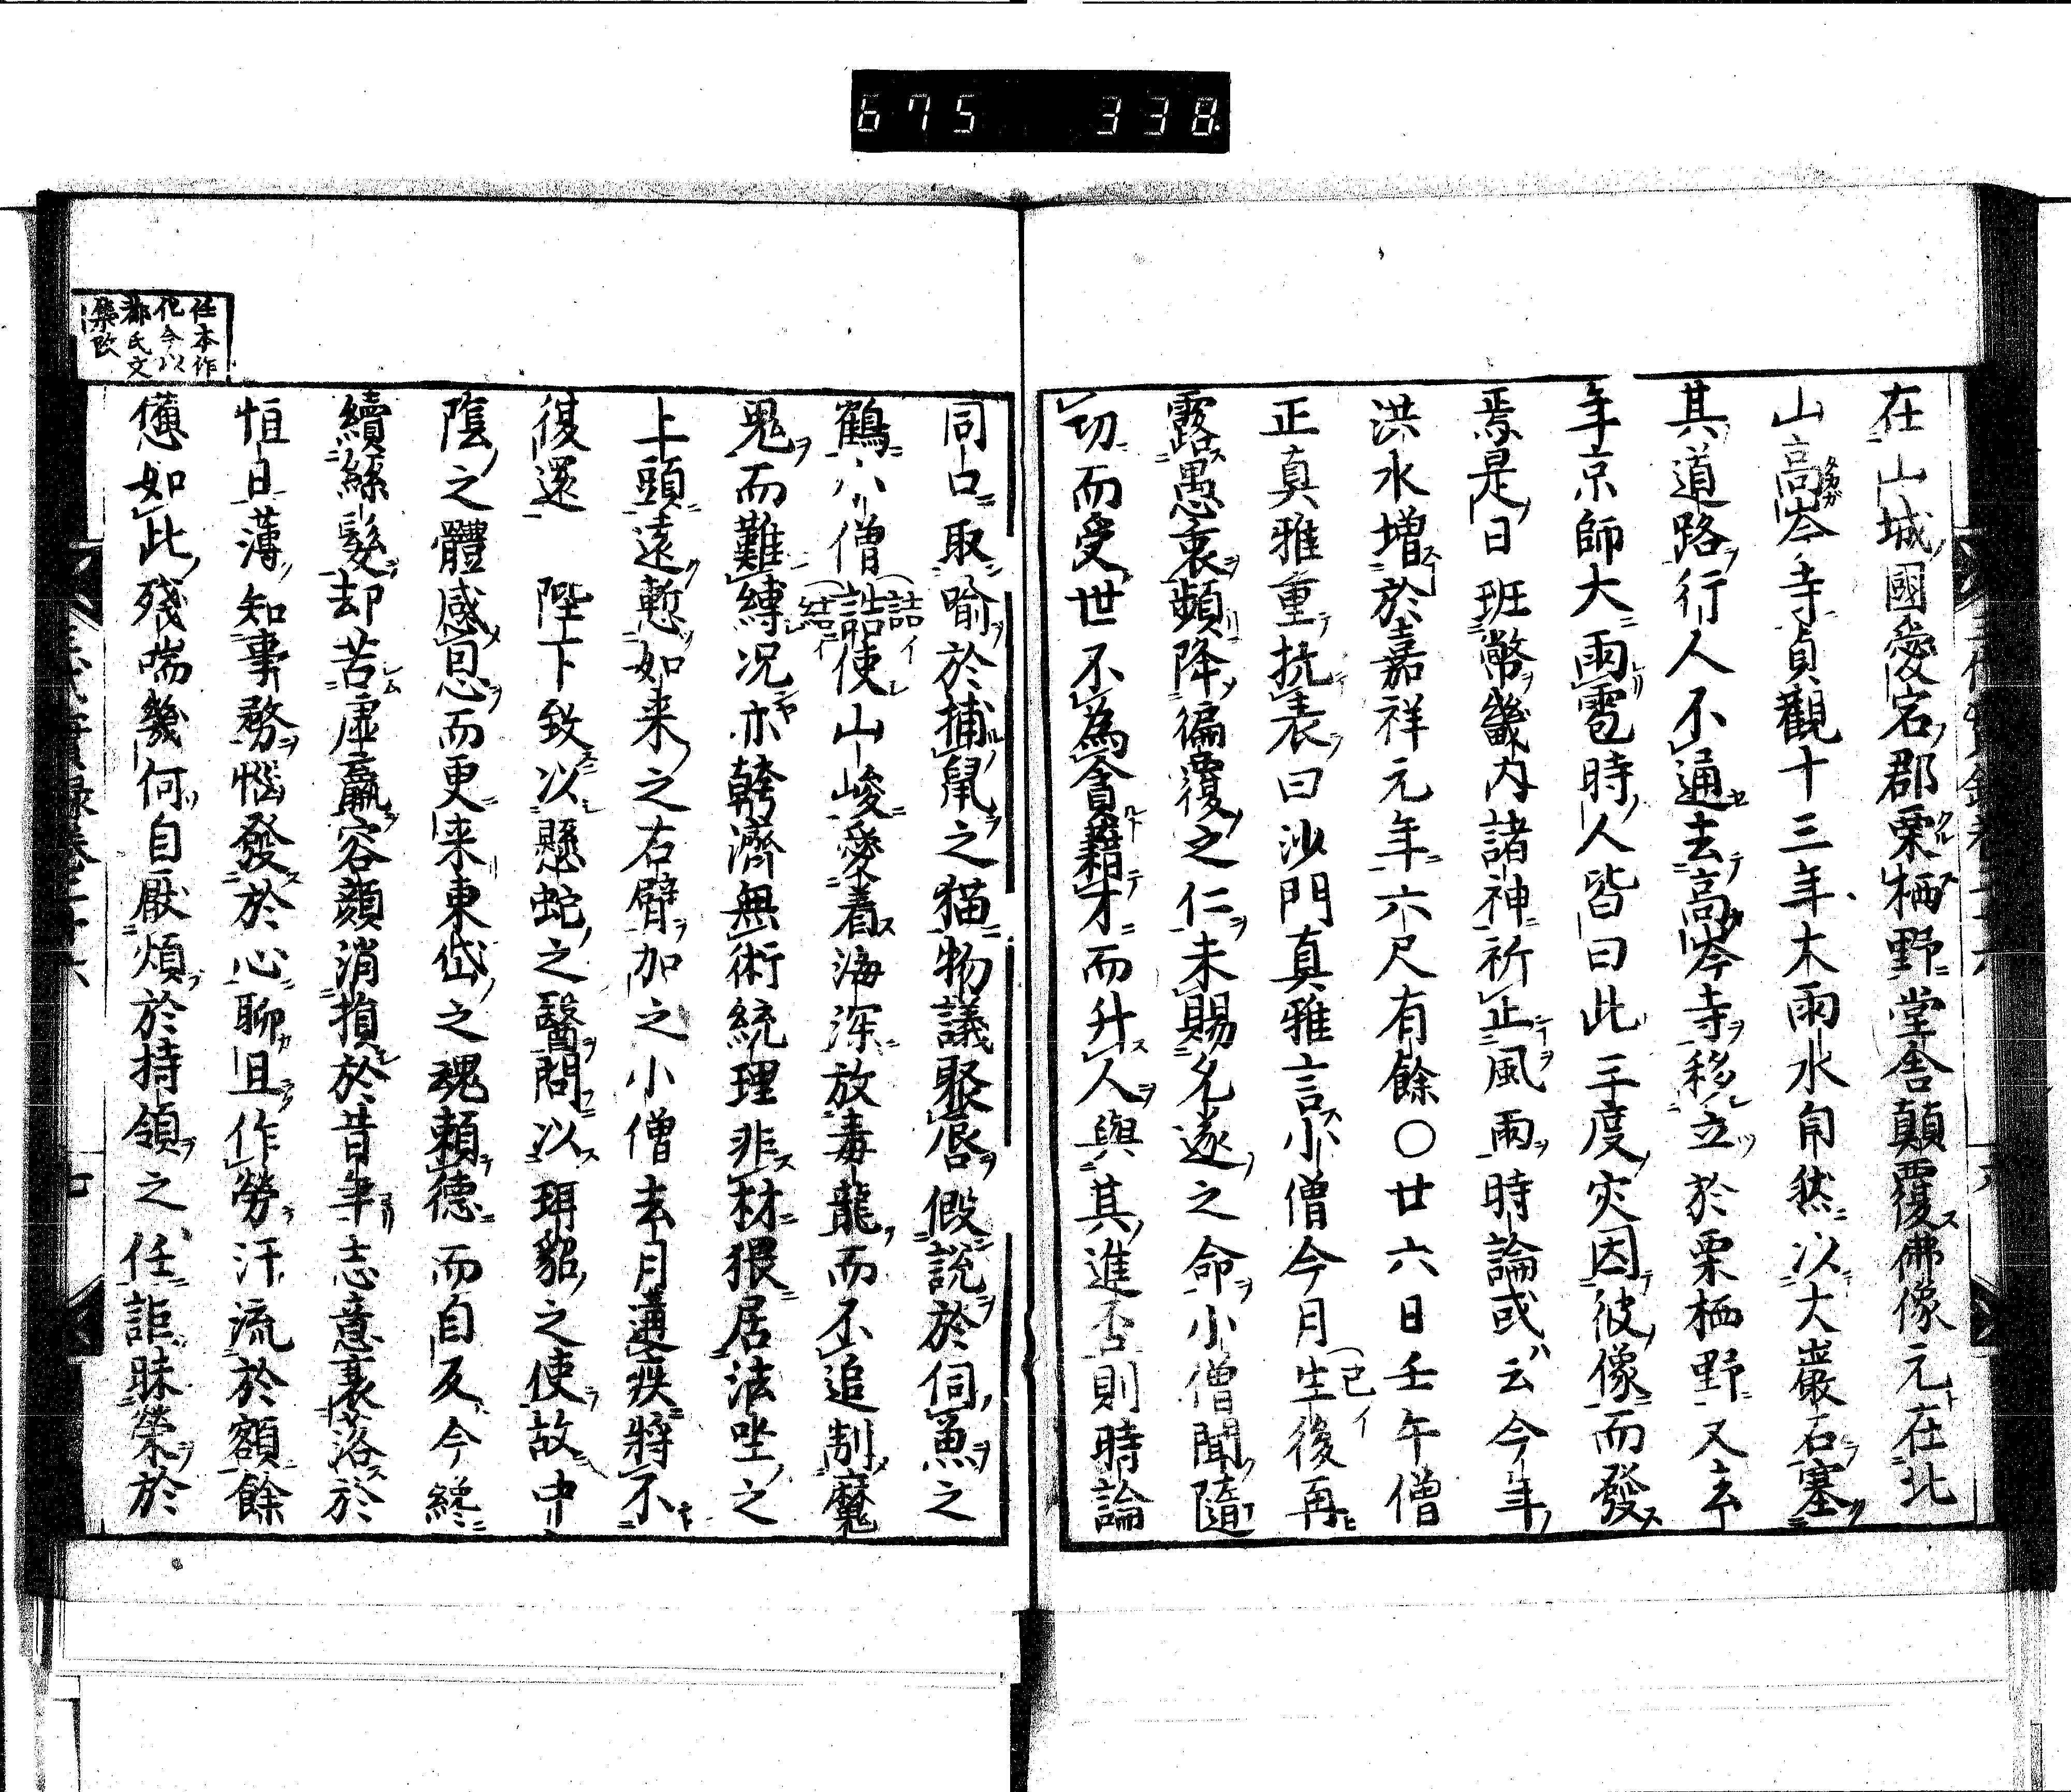 675 338
在山城國愛宕郡栗栖野堂舎顛覆佛像元在北
山高岑寺貞觀十三年大雨水自然以大巖石塞
其道路行人不通去高岑寺移立於栗栖野又去
年京師大雨雹時人皆曰此三度灾因彼像而發
焉是日班幣畿内諸神祈止風雨時論或云今年
洪水增於嘉祥元年六尺有餘〇廿六日壬午僧
正真雅重抗表曰沙門真雅言小僧今月生後再
露愚衷頻降徧覆之仁未賜允遂之命小僧聞隨
切而受世不為貪藉才而升人與其進否則時論
同口取喻於捕鼠之猫物議聚唇假說於伺魚之
鶴小僧誥使山峻愛着海深放毒龍而不追制魔
鬼而難縛况亦幹濟無術統理非材猥居法坐之
上頭遠慙如来之右臂加之小僧去月遘疾將不
復還　陛下致以懸蛇之醫問以珥貂之使故中
陰之體感恩而更来東岱之魂賴德而自反今纔
續絲髮却苦虛羸容顔消損於昔年志意衰落於
恒日薄知事務惱發於心聊且作勞汗流於額餘
憊如此殘喘幾何自厭煩於持領之任詎昧榮於
任本作
化今以
都氏文
集改